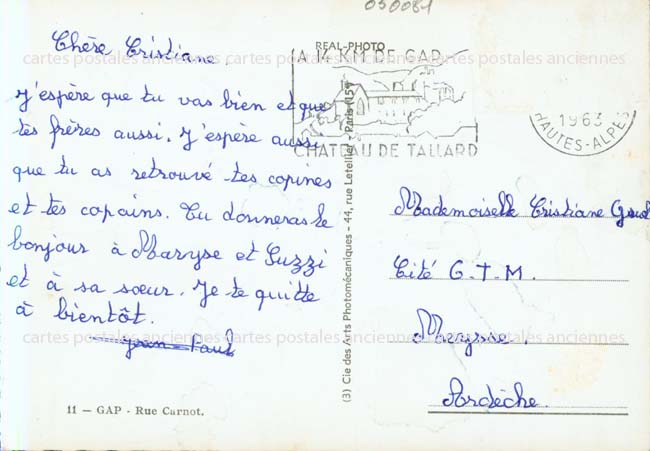 030081
Chère Cristiane.
J'espère que tu vas bien et que
tes frères aussi. J'espère aussi
que tu as retrouvé tes copines
et tes copains. Tu donneras le
bonjour à Maryse et Suzzi
et à sa sœur. Je te quitte
à bientôt.
Jean-Paul
11 — GAP - Rue Carnot.
REAL-PHOTO
(3) Cie des Arts Photomécaniques - 44, rue Letellier - Paris 15e
A 14 KM DE GAP
CHATEAU DE TALLARD
1963
HAUTES-ALPES
Mademoiselle Cristiane
Cité G.T.M.
Meysse.
Ardèche.
cartes postales anciennes cartes postales anciennes cartes postales anciennes
cartes postales anciennes cartes postales anciennes cartes postales anciennes